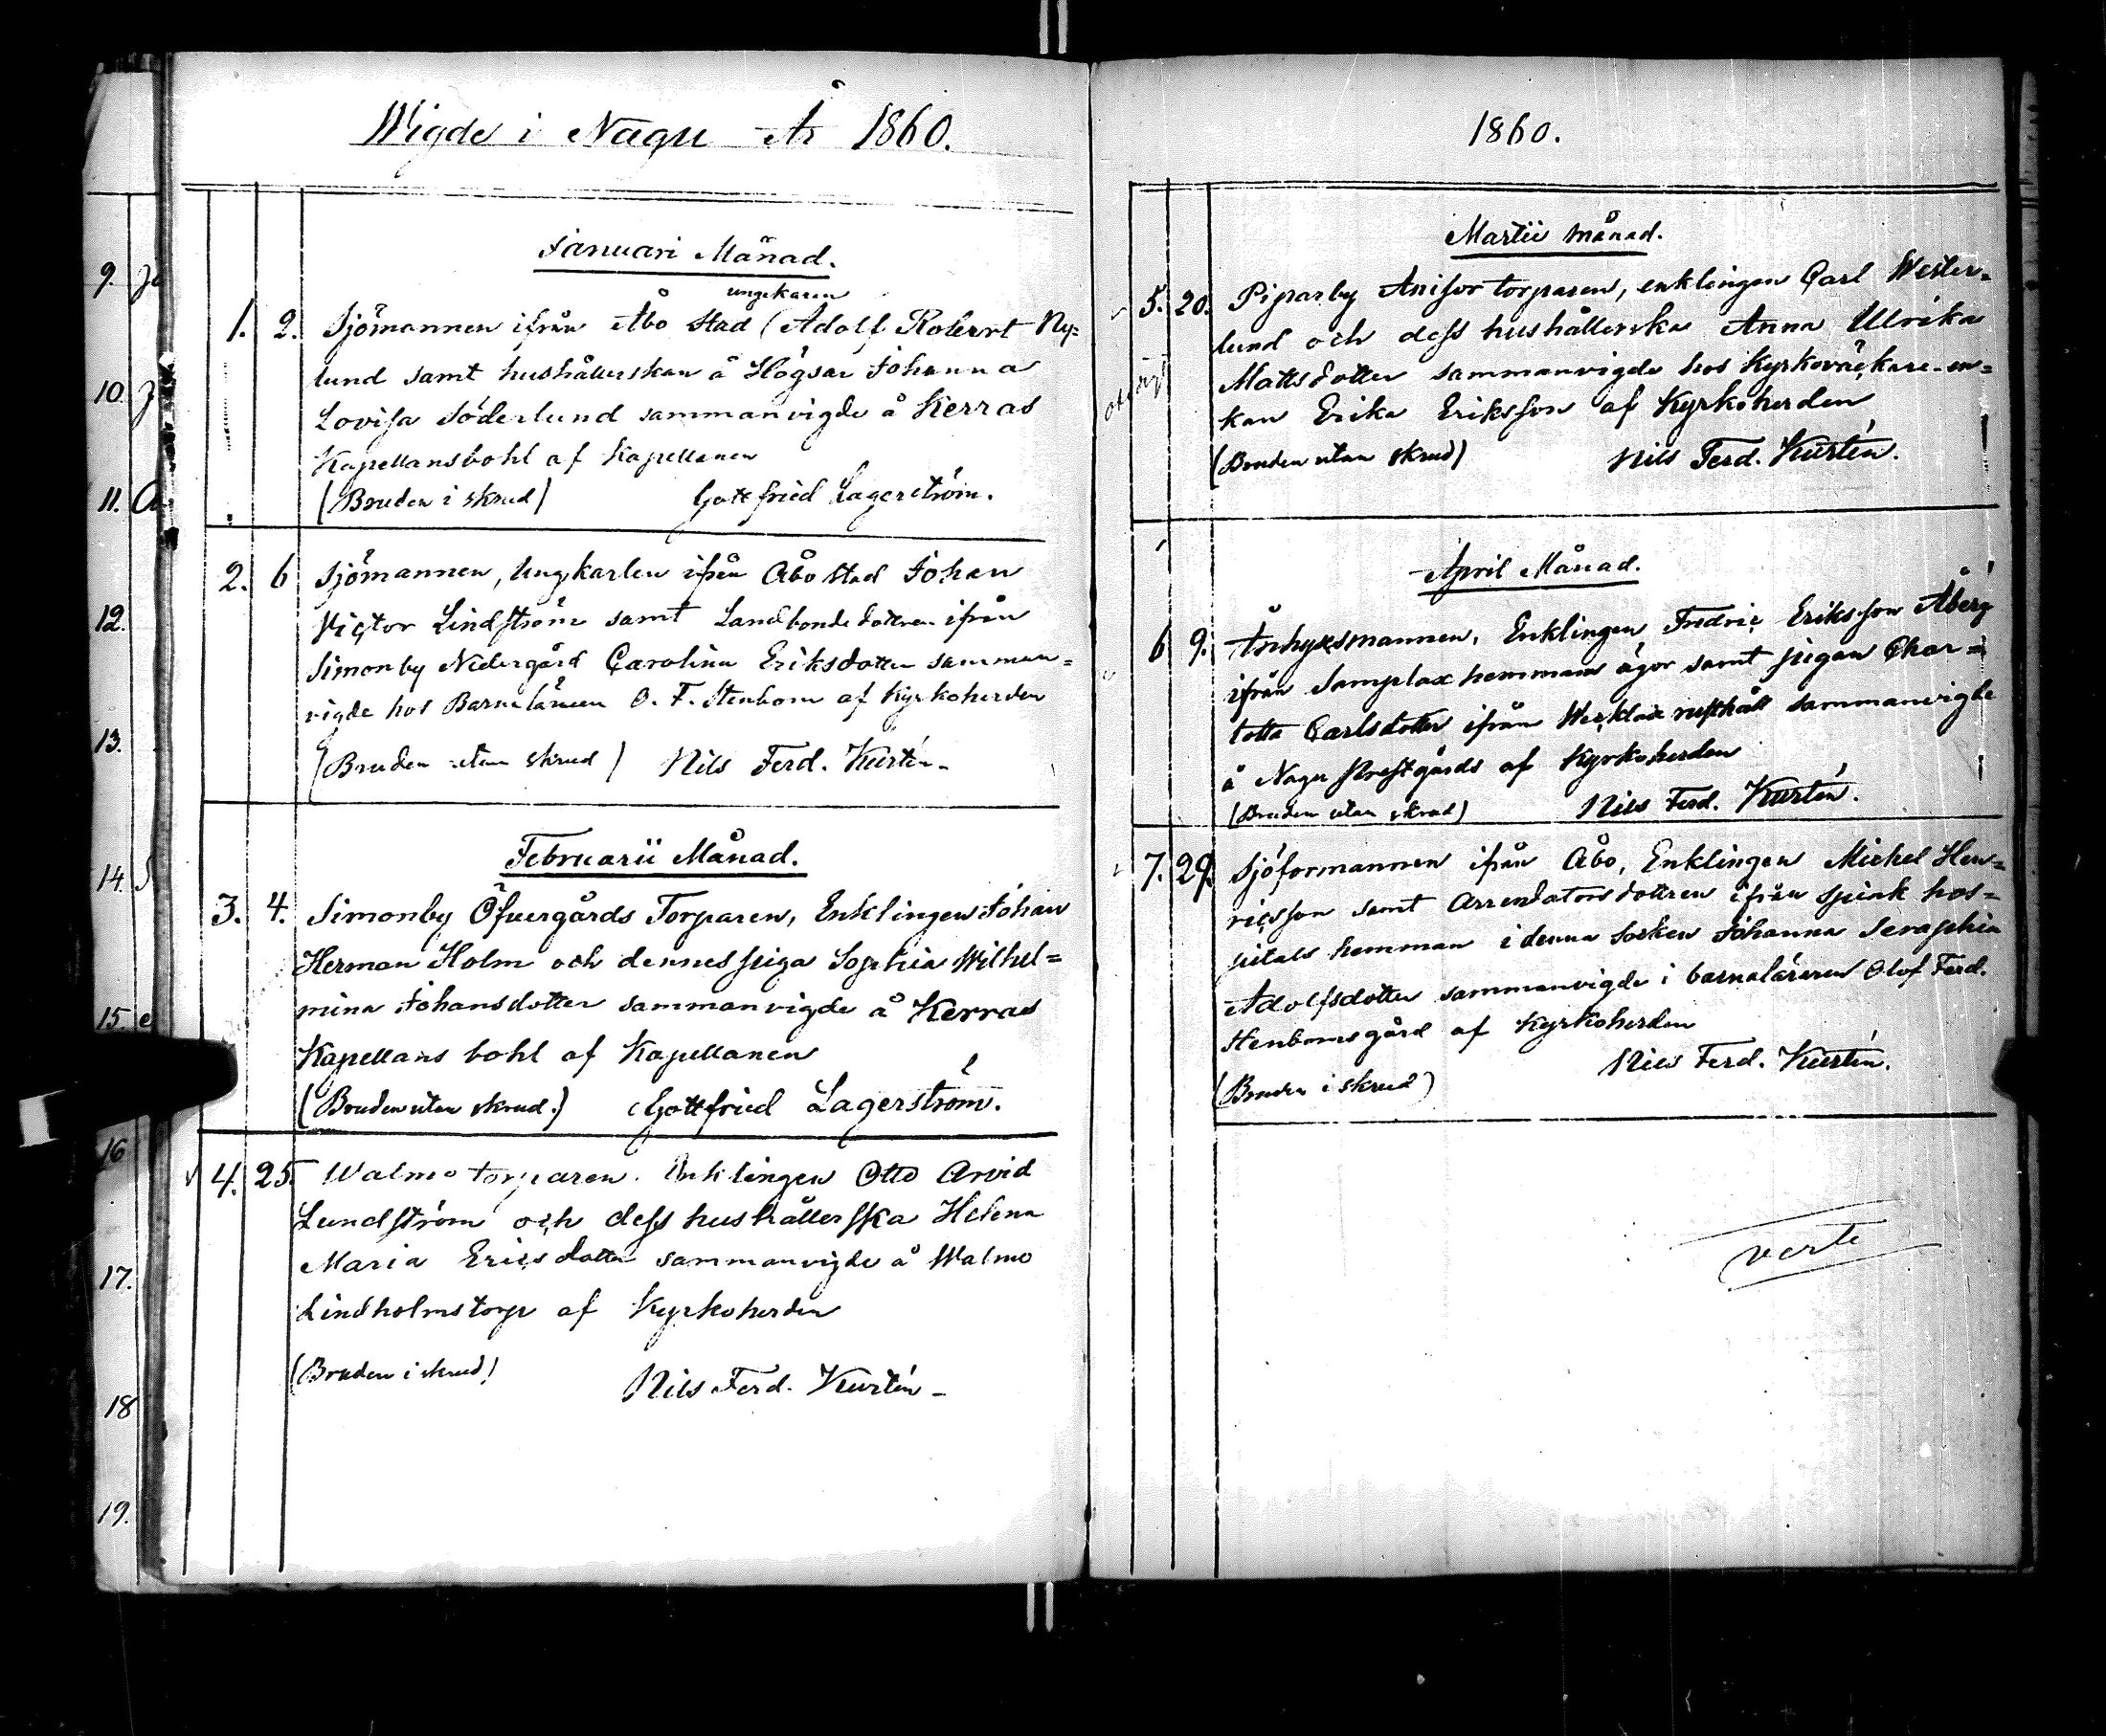 Wigde i Nagu År 1860.
Januari Månad.
ungkaren
1. 2. Sjömannen ifrån Åbo Stad (Adolf Robert Ny=
lund samt hushållerskan å Högsar Johanna
Lovisa Söderlund sammanvigde å Kerras
Kapellansbohl af Kapellanen
(Bruden i skrud) Gottfried Lagerström.
2. 6 Sjömannen, Ungkarlen ifrån Åbo stad Johan
Victor Lindström samt Landbondedottren ifrån
Simonby Nedergård Carolina Eriksdotter samman=
vigde hos Barnaläraren O. F. Stenbom af Kyrkoherden
(Bruden utan skrud) Nils Ferd. Kurtén.
Februarii Månad.
3. 4. Simonby Öfvergårds Torparen, Enklingen Johan
Herman Holm och dennes piga Sophia Wilhel=
mina Johansdotter sammanvigde å Kerras
Kapellans bohl af Kapellanen
(Bruden utan skrud.) Gottfried Lagerström.
4. 25. Walmo torparen. Enklingen Otto Arvid
Lundström och dess hushållerska Helena
Maria Ericsdotter sammanvigde å Walmo
Lindholmstorp af Kyrkoherden
(Bruden i skrud) Nils Ferd. Kurtén
1860.
Martii månad.
5. 20. Piparby Anisor torparen, enklingen Carl Wester=
lund och dess hushållerska Anna Ulrika
Mattsdotter sammanvigde hos Kyrkoväckare-en=
kan Erika Eriksson af Kyrkoherden
(Bruden utan skrud) Nils Ferd. Kurtén.
April Månad.
6 9. Enklingen Fredric Eriksson Åberg
ifrån Samplax hemmans ägor samt pigan Char=
lotta Carlsdotter ifrån rusthåll sammanvigde
å Nagu Prestgårds af Kyrkoherden
(Bruden utan skrud) Nils Ferd. Kurtén.
7. 29. Sjöformannen ifrån Åbo, Enklingen Michel Hen=
ricsson samt Arrendatorsdottren ifrån Spink hos=
pitals hemman i denna Socken Johanna Seraphia
Adolfsdotter sammanvigde i barnaläraren Olof Ferd.
Stenboms gård af Kyrkoherden
(Bruden i skrud) Nils Ferd. Kurtén.
verte
9.
10.
11.
12.
13.
14.
15.
16
17.
18
19.